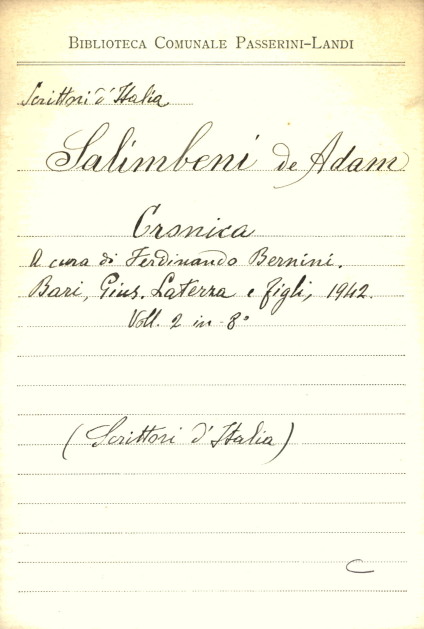 Biblioteca Comunale Passerini-Landi
Scrittori d'Italia
Salimbeni de Adam
Cronica
A cura di Ferdinando Bernini.
Bari, Gius. Laterza e figli, 1942.
Voll. 2 in-8°
(Scrittori d'Italia)
C